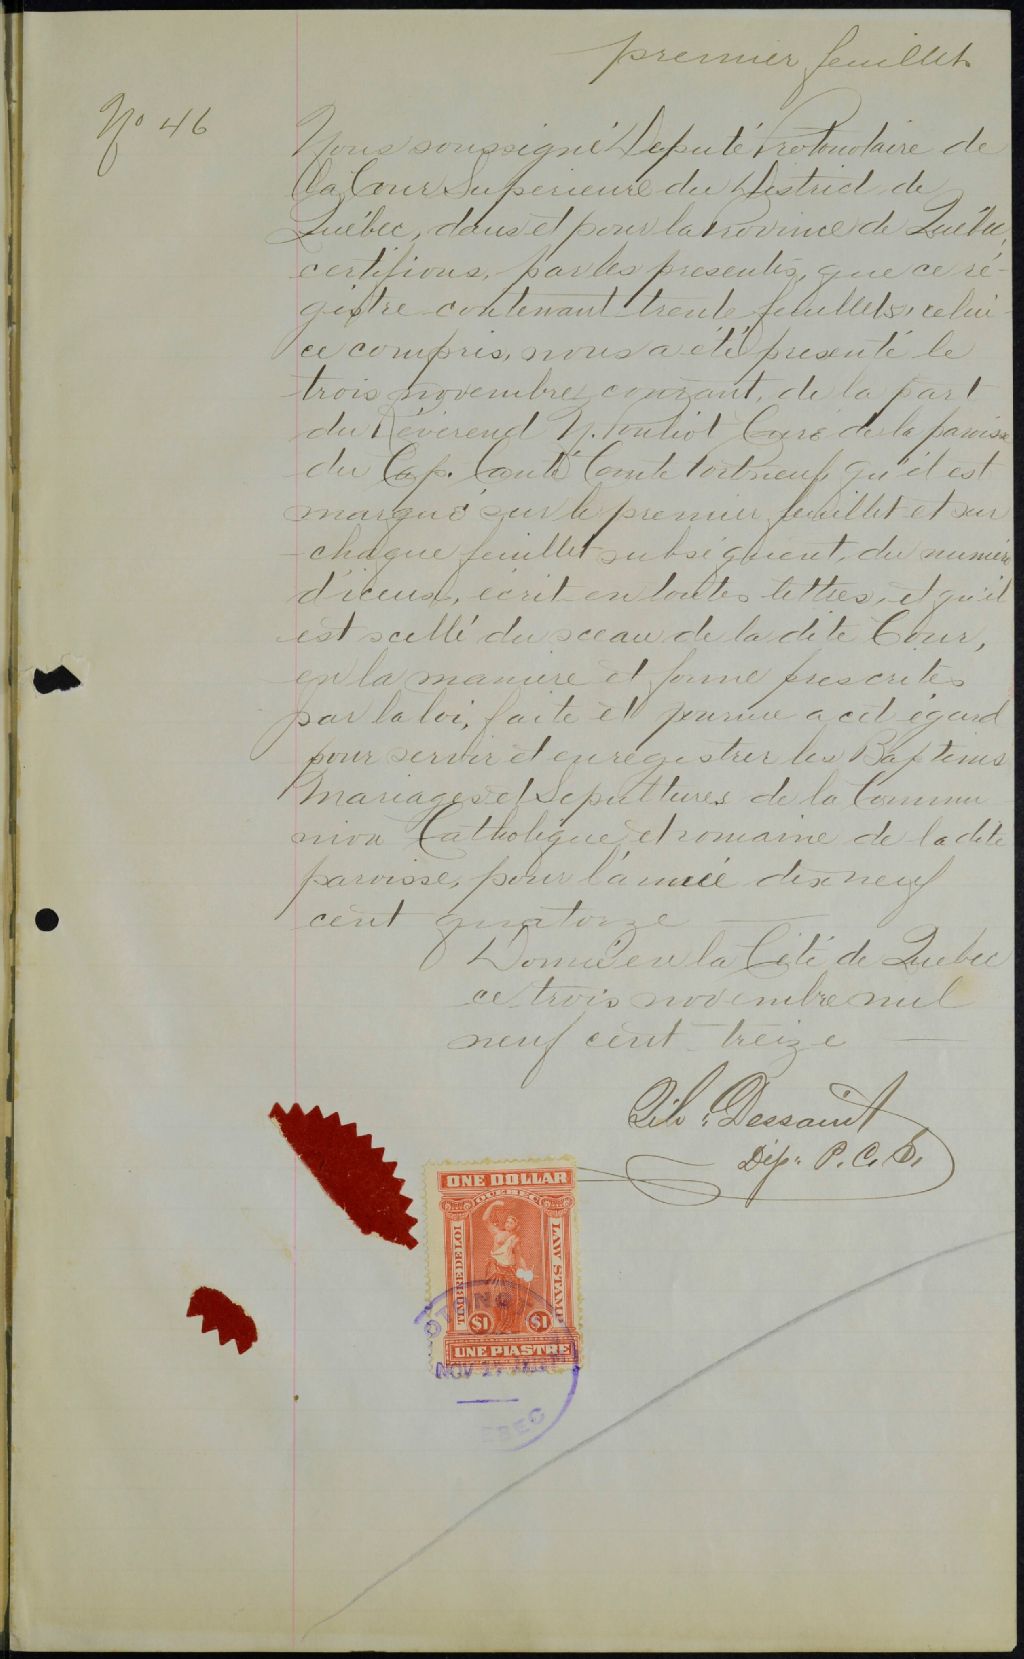 premier feuillet
No 46
Nous soussigné Deputé Protonotaire de
la Cour Superieure du District de
Québec, dans et pour la Province de Québec,
certifions, par les presentes, que ce ré-
gistre contenant trente feuillets, celui-
ce compris, nous a été presenté le
trois novembre courant, de la part
du Révérend Pouliot Curé de la paroisse
du Cap. Santé Comté Portneuf, qu'il est
marqué sur le premier feuillet et sur
chaque feuillet subséquent, du numéro
d'iceux, écrit en toutes lettres, et qu'il
est scellé du sceau de la dite Cour,
en la manière et forme prescrites
par la loi, faite et pourvue a cet égard
pour servir et enregistrer les Baptemes
Mariages et Sepultures de la Commu-
nion Catholique et romaine de la dite
paroisse, pour l'année dix neuf
cent quatorze
Donné en la Cité de Quebec
ce trois novembre mil
neuf cent treize
Dessaint
Dép. P. C. S.
ONE DOLLAR
QUEBEC
TIMBRE DE LOI
LAW STAMP
$1 $1
UNE PIASTRE
NOV
EBEC